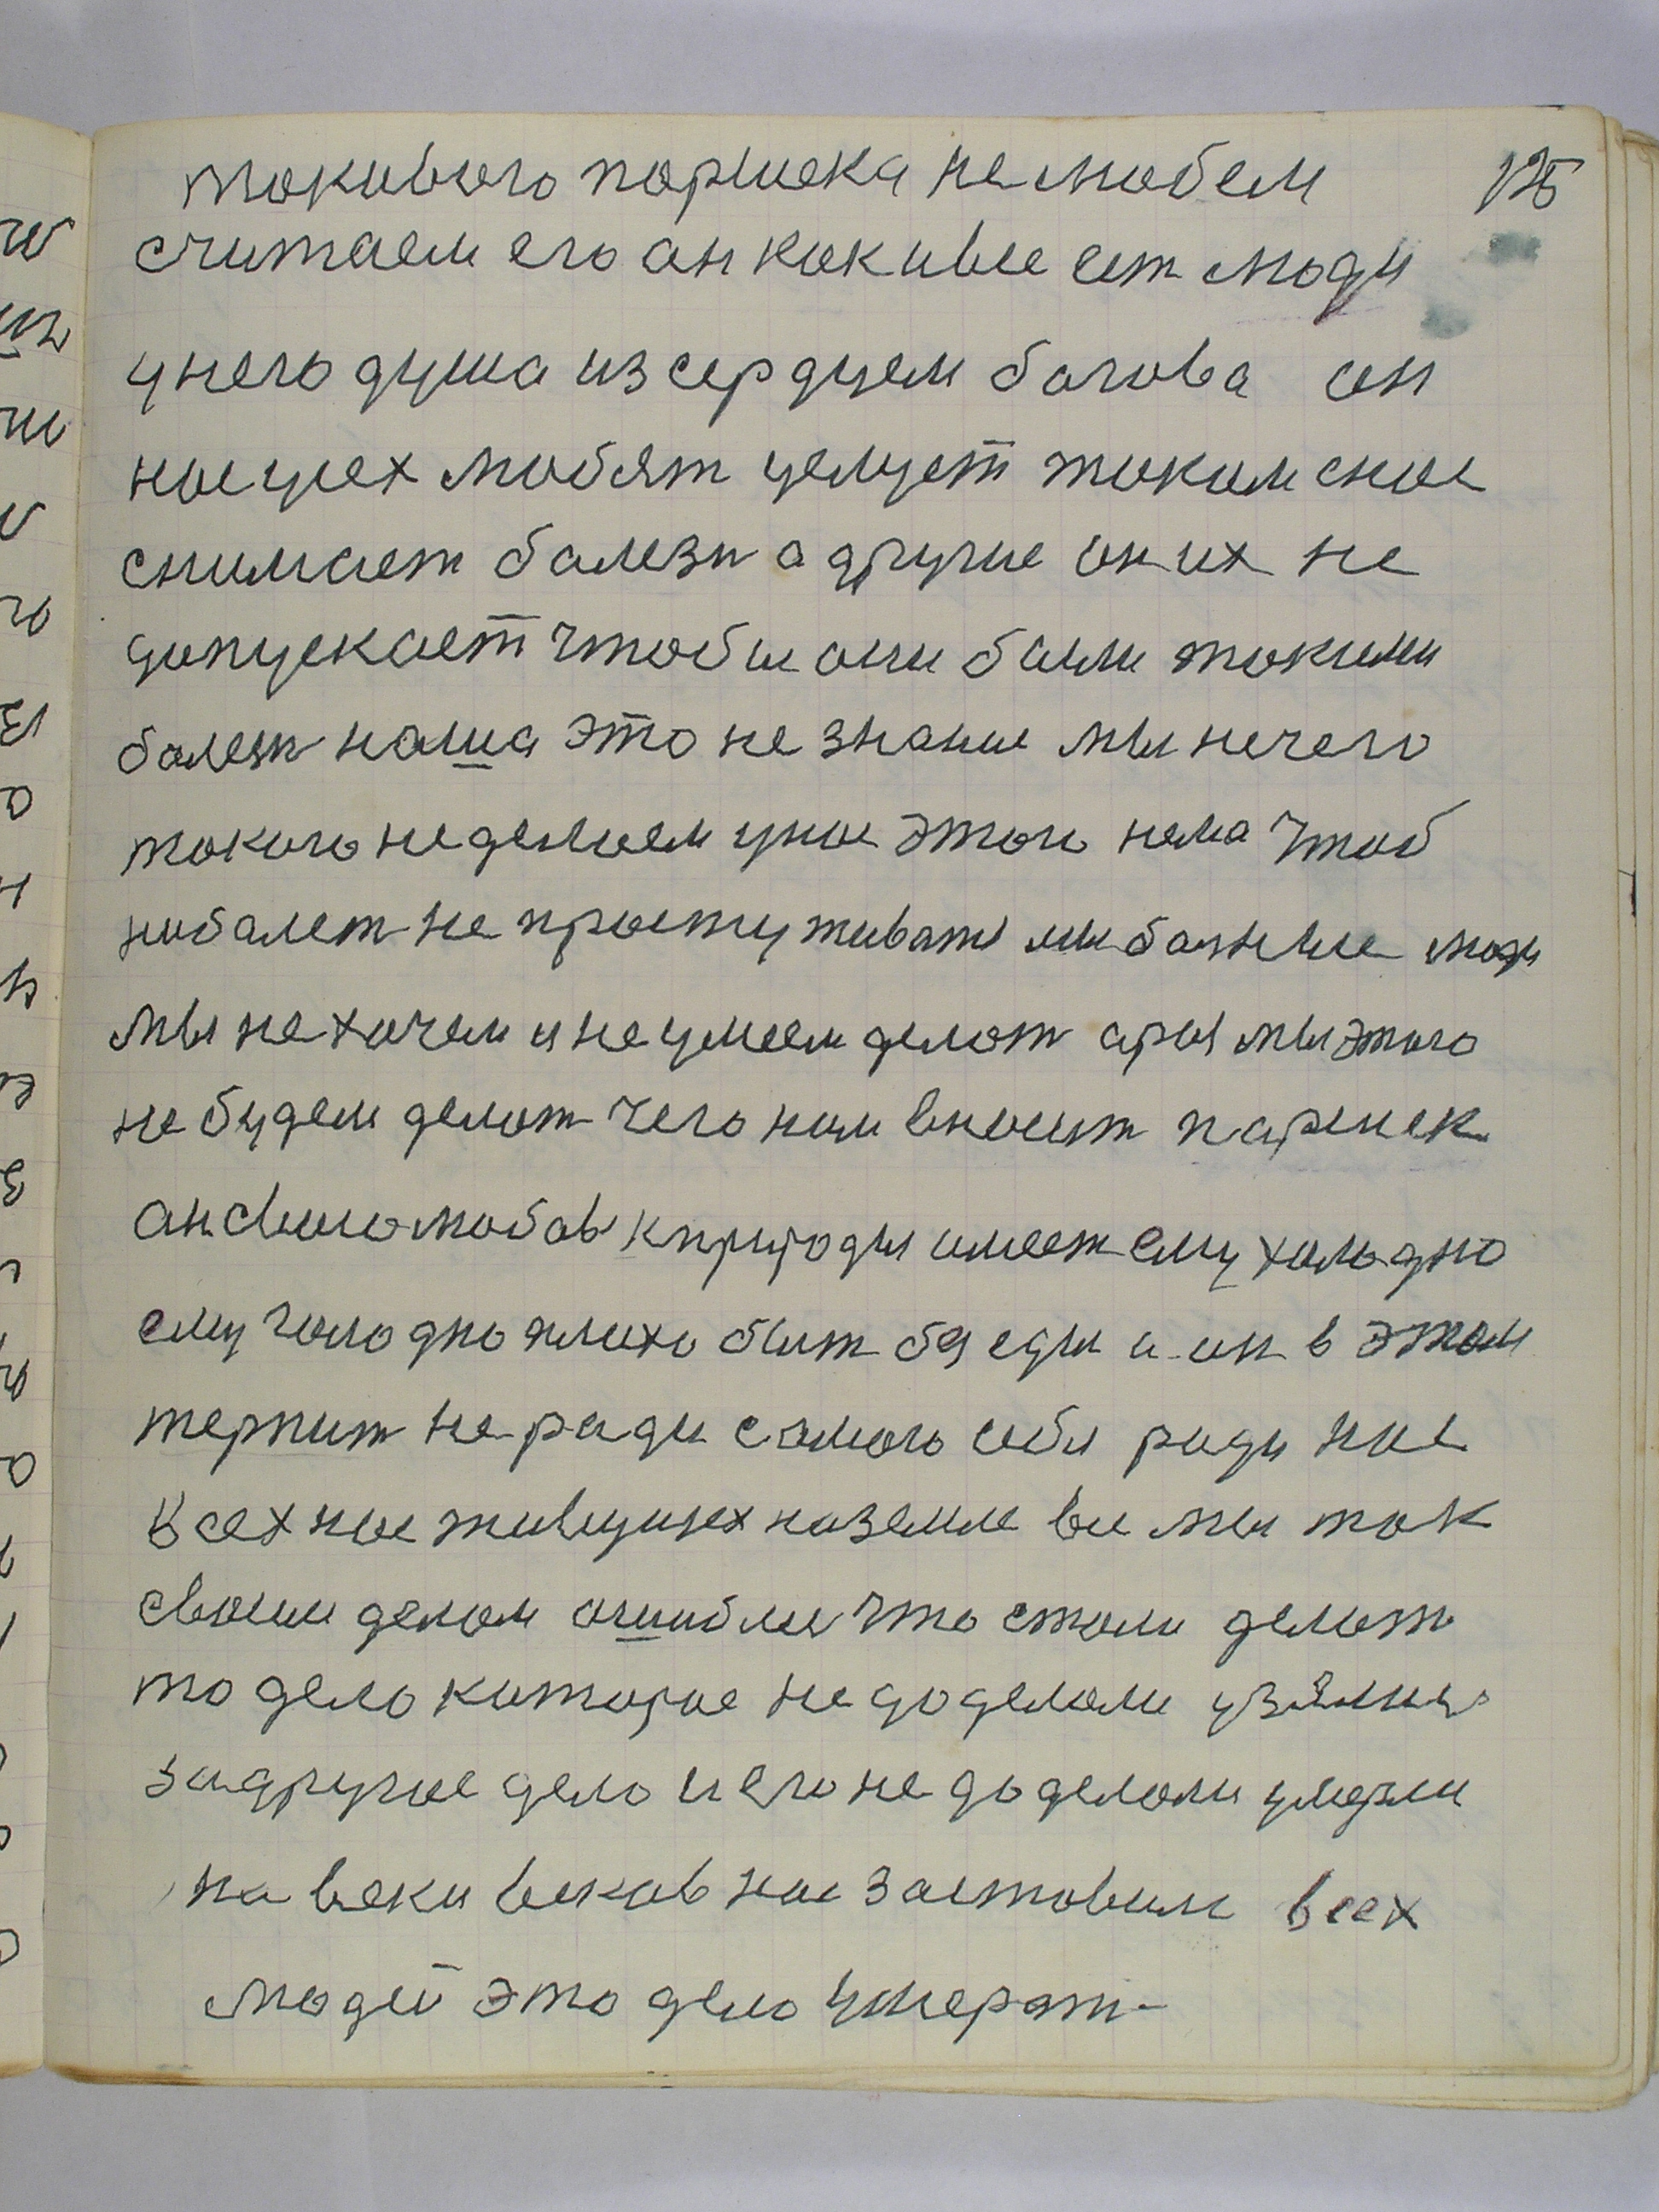 токивого паршека не любем 126
считаем его ан как и все ест люди
у него душа из сердцем багова он
нас усех любят целует током снас
снимает балезн а другие он их не
допускает чтобы они были токими
болезн наша это не знание мы нечего
токого не делаем у нас этого нема чтоб
небалет не простуживатя мы балные люди
мы не хочем и не умеем делат а раз мы этого
не будем делат чего нам вносит паршек
ан свою любов к природы имеет ему холодно
ему голодно плихо быт без еды и он в этом
терпит не ради самого себя ради нас
всех нас живущих на земле все мы так
своим делом ошиблис что стали делат
то дело которое не доделали узялис
за другое дело и его не доделали умерли
на веки веков нас заставил всех
людей это дело умерат